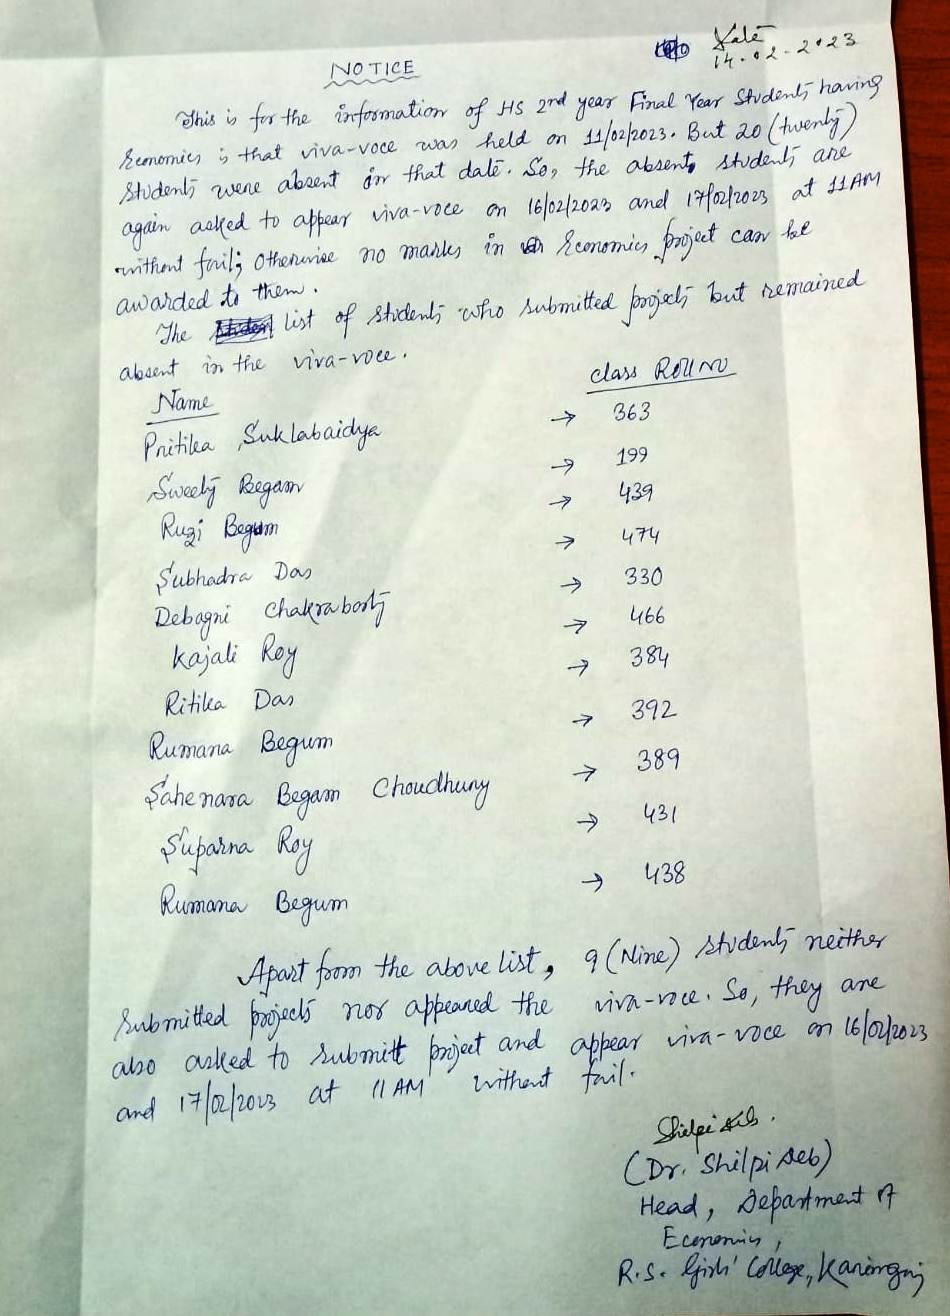 Date
14.02.2023
NOTICE
This is for the information of HS 2nd year Final Year Students having
Economics is that viva-voce was held on 11/02/2023. But 20 (twenty)
Students were absent on that date. So, the absent students are
again asked to appear viva-voce on 16/02/2023 and 17/02/2023 at 11 AM
without fail; otherwise no marks in Economics project can be
awarded to them.
The list of students who submitted projects but remained
absent in the viva-voce.
Name class Roll No
Pritika Suklabaidya → 363
Sweety Begam → 199
Ruzi Begum → 439
Subhadra Das → 474
Debagni Chakraborty → 330
Kajali Roy → 466
Ritika Das → 384
Rumana Begum → 392
Sahenara Begam Choudhury → 389
Suparna Roy → 431
Rumana Begum → 438
Apart from the above list, 9 (Nine) students neither
submitted projects nor appeared the viva-voce. So, they are
also asked to submitt project and appear viva-voce on 16/02/2023
and 17/02/2023 at 11 AM without fail.
Shilpi Deb.
(Dr. Shilpi Deb)
Head, Department of
Economics,
R.S. Girls' College, Karimganj